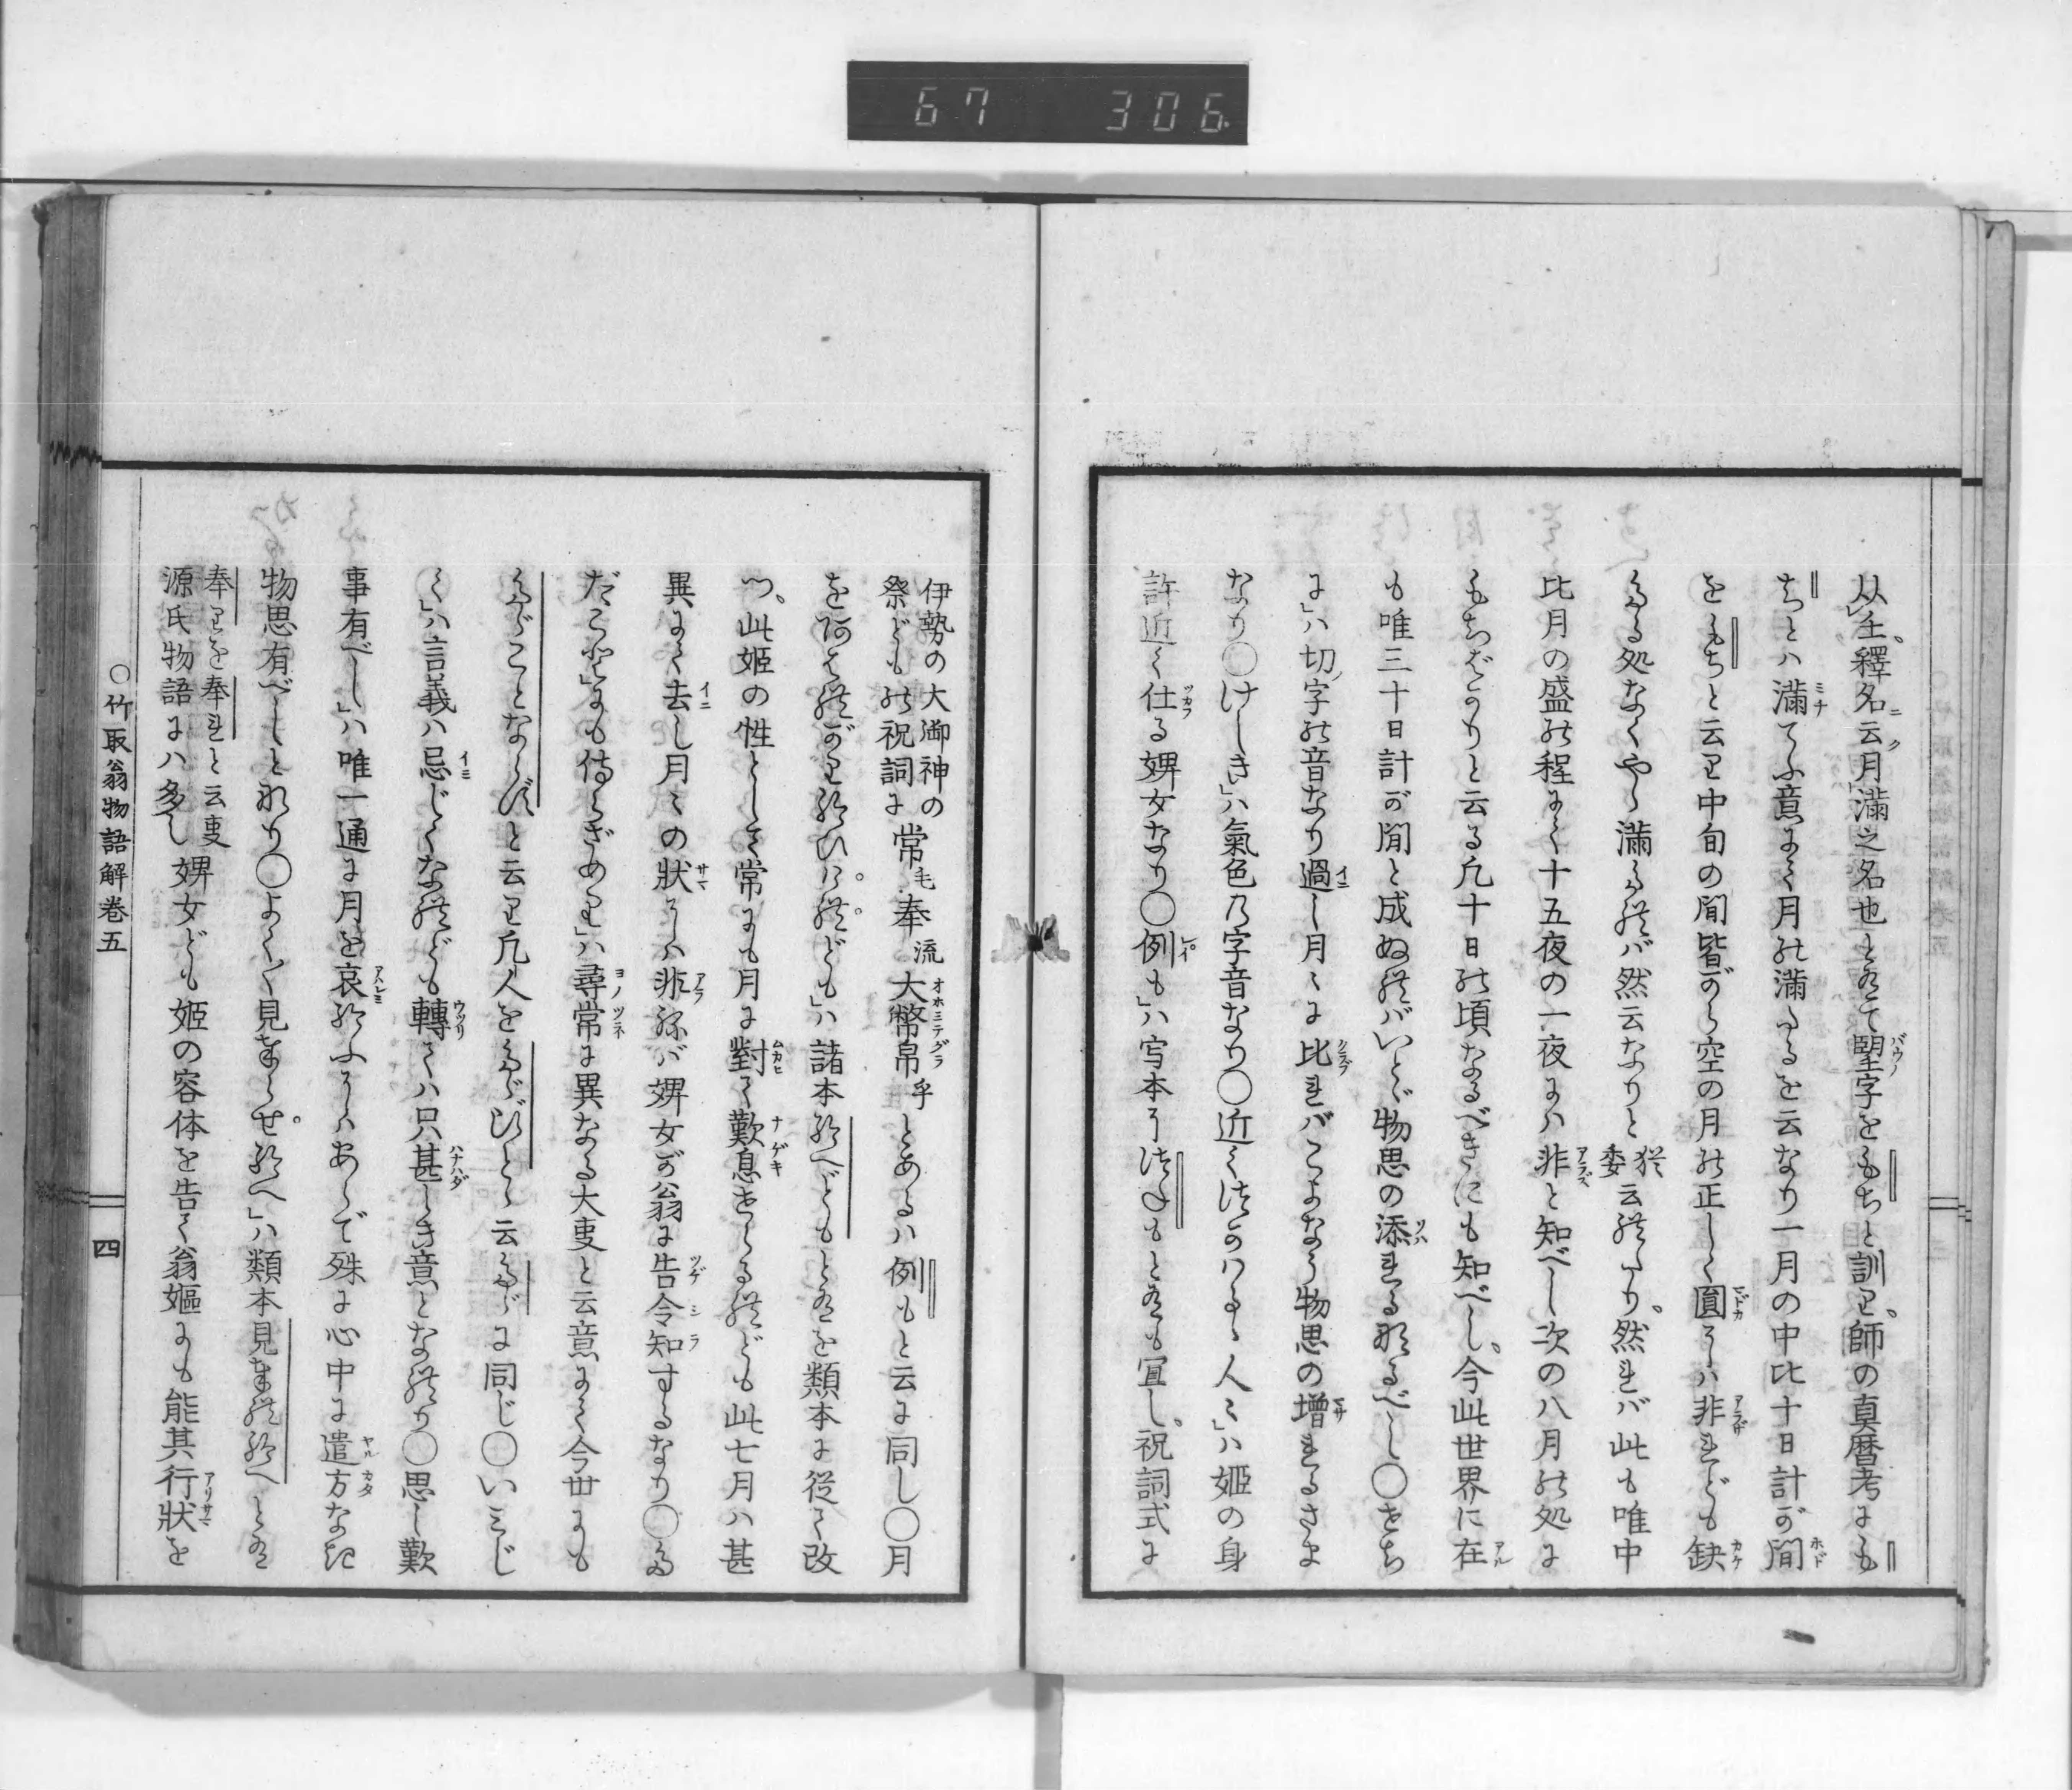 67 306
从𡈼、釋名ニ云ク月滿之名也と有て朢字をもちと訓り、師の真暦考にも
ちとハ滿てふ意にて月の滿たるを云なり一月の中比十日計が間
をもちと云り中旬の間皆がら空の月の正しく圓にハ非れども缺
たる処なくやゝ滿たればバ然云なりと委云れたり。然れバ此も唯中
比月の盛の程にて十五夜の一夜にハ非と知べし次の八月の処に
もちばかりと云る凡十日の頃なるべきにも知べし、今此世界に在
も唯三十日計が間と成ぬれバいとゞ物思の添れる那るべし〇せち
に」ハ切ノ字の音なり過し月〻に比れバこよなう物思の増れるさま
なり〇けしき」ハ氣色乃字音なり〇近く使はるゝ人〻」ハ姫の身
許近く仕る婢女なり〇例も」ハ写本に常もと有も宜し。祝詞式に
伊勢の大御神の
祭どもの祝詞に常毛奉流大幣帛乎とあるハ例もと云に同し〇月
をあはれがり給ひけれども」ハ諸本給へどもと有を類本に從て改
つ。此姫の性として常にも月に對て歎息せらるれども此七月ハ甚
異にて去し月〻の状にハ非ねバ婢女が翁に告令知するなり〇たゞ
だことにも侍らざめり」ハ尋常に異なる大事と云意にて今世にも
たゞことならずと云り凡人をたゞびとゝ云たゞに同じ〇いみじ
く」ハ言義ハ忌じくなれども轉てハ只甚しき意となれり〇思し歎
事有べし」ハ唯一通に月を哀給ふにハあらで殊に心中に遣方なき
物思有べしと那り〇よく〳〵見奉らせ給へ」ハ類本見奉れ給へと有
奉りを奉れと云事
源氏物語にハ多し婢女ども姫の容体を告て翁嫗にも能其行状を
〇竹取翁物語解巻五
四